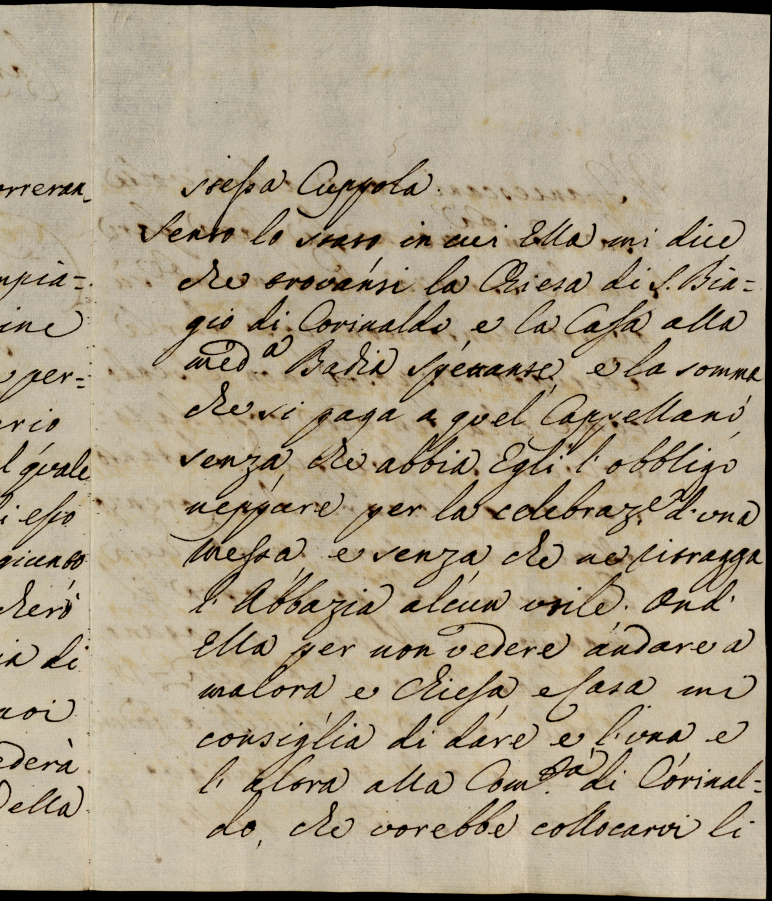 orreran-
mpia=
ine
per=
erio
l quale
i esso
giunto
cherò
ia di
noi
ederà
Della
stessa Cuppola.
Sento lo stato in cui Ella mi dice
che trovansi la Chiesa di S. Bia=
gio di Corinaldo e la Casa alla
med.a Badia spettante, e la somma
che si paga a quel Cappellano,
senza che abbia Egli l'obbligo
neppure per la celebraz.e d'una
Messa, e senza che ne ritragga
l'Abbazia alcun utile. Ond'
Ella per non vedere andare a
malora e Chiesa, e Casa mi
consiglia di dare e l'una e
l'altra alla Com.tà di Corinal=
do, che vorebbe collocarvi li